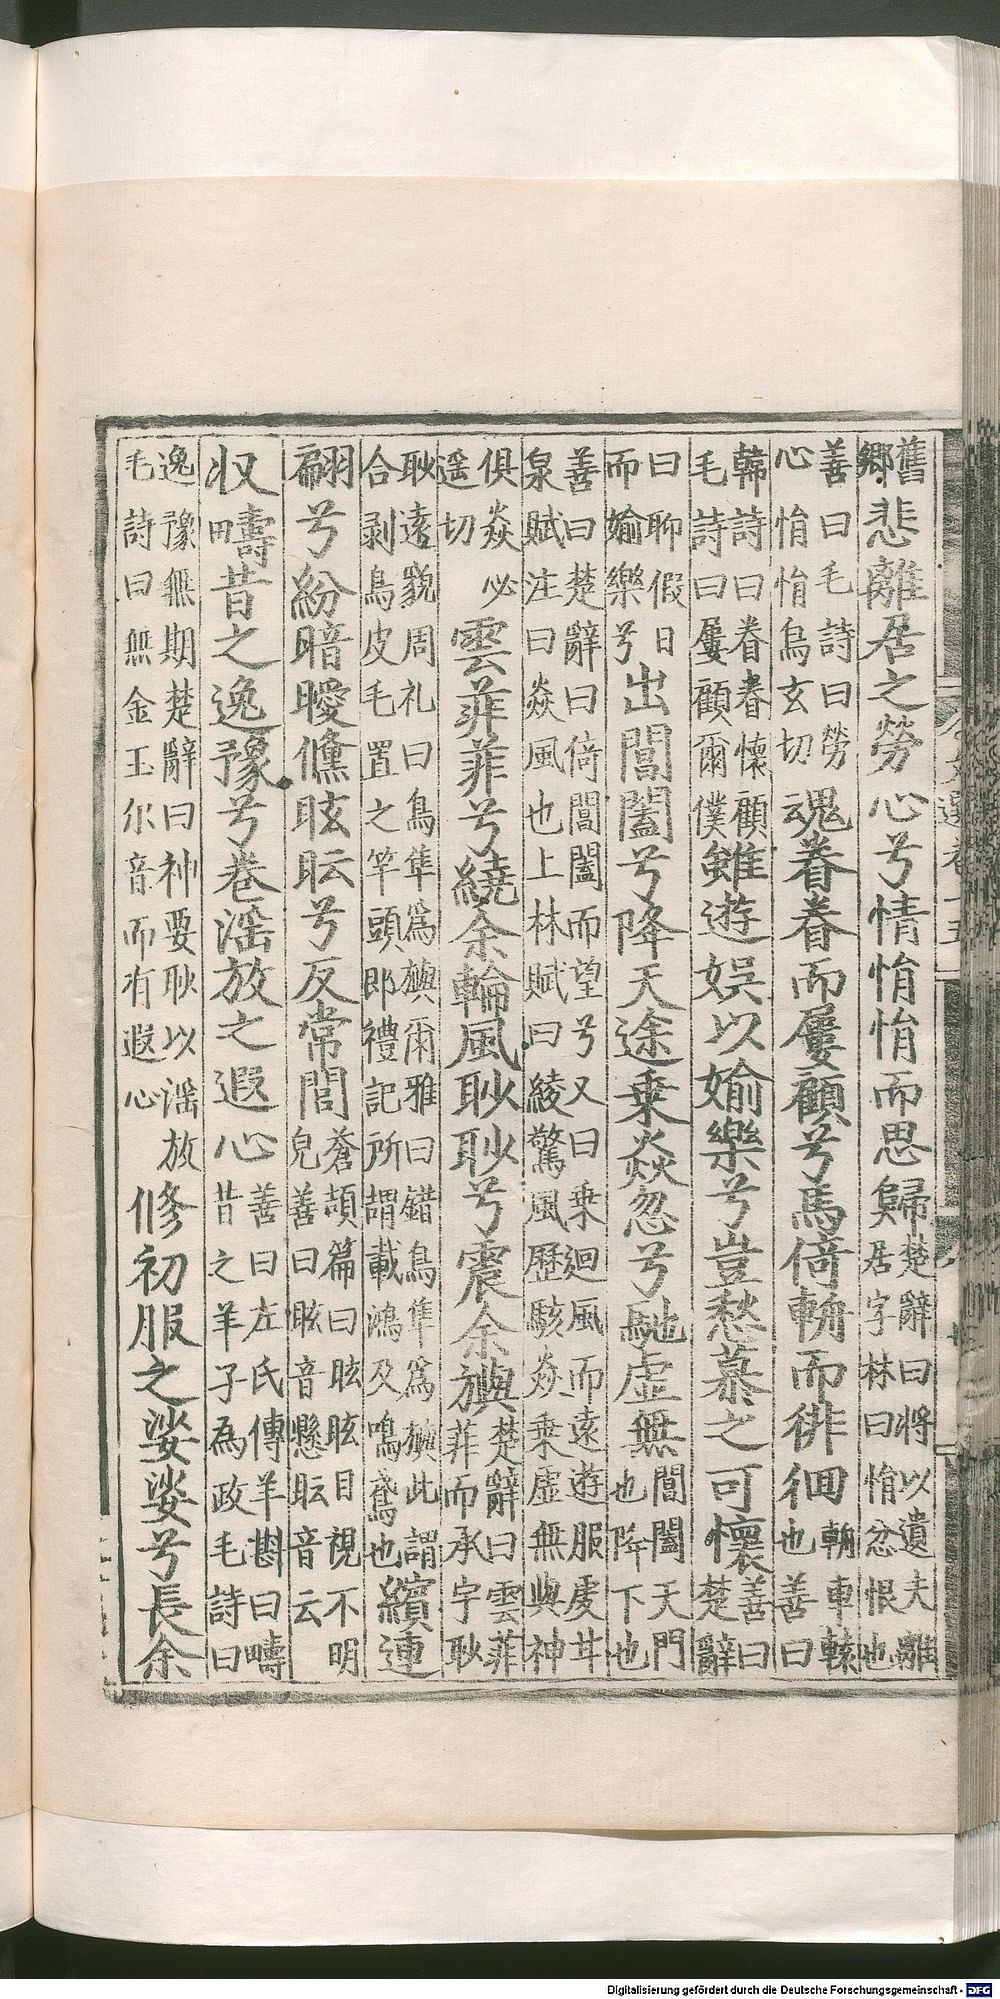 舊鄉悲離居之勞心兮情悁悁而思歸楚辭曰將以遺夫離居字林曰悁忿恨也
善曰毛詩曰勞心悁悁烏玄切魂眷眷而屢顧兮馬倚輈而徘徊輈車轅也善曰
韓詩曰眷眷懷顧毛詩曰屢顧爾僕雖遊娛以媮樂兮豈愁慕之可懷善曰楚辭
曰聊假日而媮樂兮出閶闔兮降天途乗猋忽兮馳虛無閶闔天門也降下也
善曰楚辭曰倚閶闔而望兮又曰乗迴風而遠遊服虔甘泉賦注曰猋風也上林賦曰綾驚風歷駭猋乗虛無與神
俱猋必遥切雲菲菲兮繞余輪風眇眇兮震余旟楚辭曰雲菲菲而承宇耿
耿遠貌周礼曰鳥隼爲旟爾雅曰錯鳥隼爲旟此謂合剥鳥皮毛置之竿頭即禮記所謂載鴻及鳴鳶也繽連
翩兮紛暗曖儵眩眃兮反常閭蒼頡篇曰眩眩目視不明皃善曰眩音懸眃音云
収疇昔之逸豫兮卷滛放之遐心善曰左氏傳羊斟曰疇昔之羊子為政毛詩曰
逸豫無期楚辭曰神要耿以滛放毛詩曰無金玉尔音而有遐心修初服之娑娑兮長余
Digitalisierung gefördert durch die Deutsche Forschungsgemeinschaft - DFG